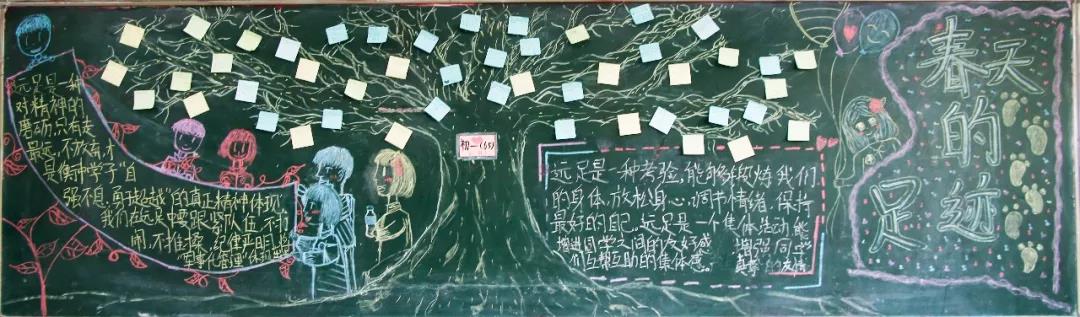 远足是一种
对精神的
最远,不放弃,才
是衡中学子"自
强不息,勇于超越"的真正精神体现
我们在远足中要跟紧队伍,不打
闹,不推搡,纪律严明,将
初一(65)
远足是一种考验,能够锻炼我们
的身体,放松身心,调节情绪,保持
最好的自己,远足是一个集体活动,能
增进同学之间的友好感
们互帮互助的集体感。
增强同学
真挚的友情
春天
的
足迹